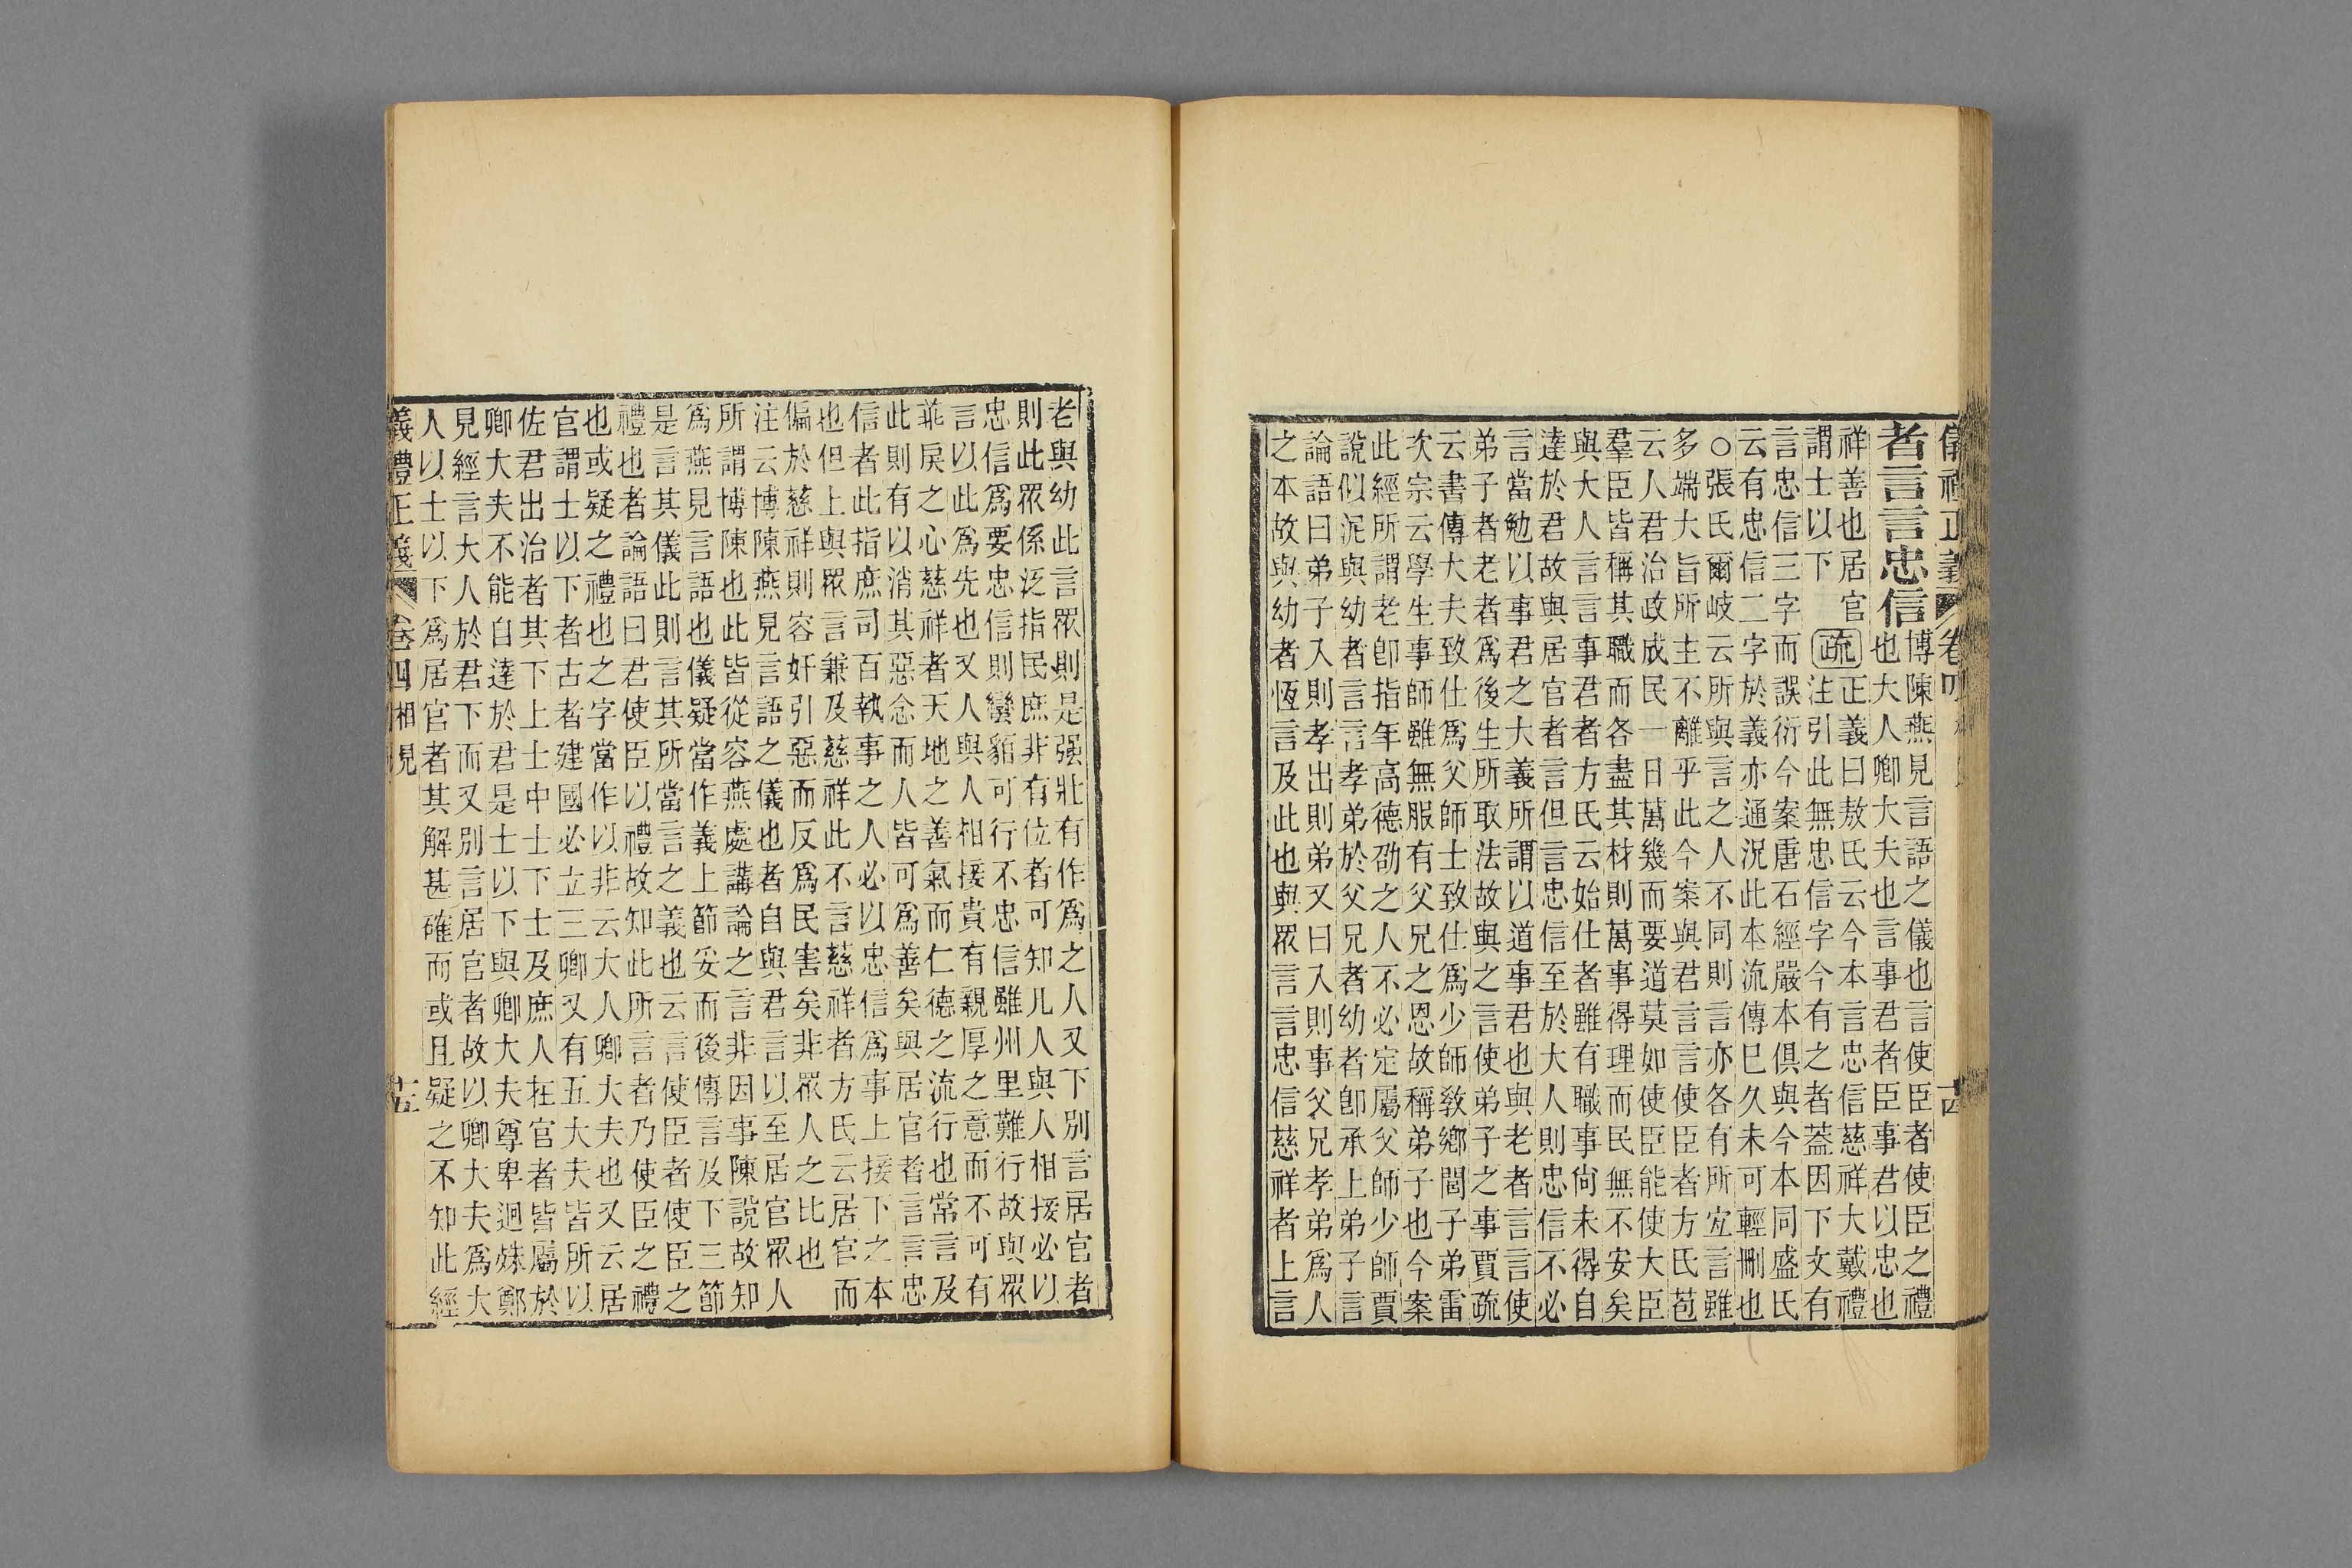 儀禮正義 卷四 十四
者言言忠信
博陳燕見言語之儀也言使臣者使臣之禮
也大人卿大夫也言事君者臣事君以忠也
祥善也居官
謂士以下
疏
正義曰敖氏云今本言忠信慈祥大戴禮
注引此無忠信字今有之者葢因下文有
言忠信三字而誤衍今案唐石經嚴本俱與今本同盛氏
云有忠信二字於義亦通況此本流傳巳久未可輕刪也
○張氏爾岐云所與言之人不同則言亦各有所宜言雖
多端大旨所主不離乎此今案與君言言使臣者方氏苞
云人君治政成民一日萬幾而要道莫如使臣能使大臣
羣臣皆稱其職而各盡其材則萬事得理而民無不安矣
與大人言言事君者方氏云始仕者雖有職事尚未得自
達於君故與居官者言但言忠信至於大人則忠信不必
言當勉以事君之大義所謂以道事君也與老者言言使
弟子者老者爲後生所取法故與之言使弟子之事賈疏
云書傳大夫致仕爲父師士致仕爲少師敎鄕閭子弟雷
次宗云學生事師雖無服有父兄之恩故稱弟子也今案
此經所謂老卽指年高德劭之人不必定屬父師少師賈
說似泥與幼者言言孝弟於父兄者幼者卽承上弟子言
論語曰弟子入則孝出則弟又曰入則事父兄孝弟爲人
之本故與幼者恆言及此也與眾言言忠信慈祥者上言
老與幼此言眾則是强壯有作爲之人又下別言居官者
則此眾係泛指民庶非有位者可知凡人與人相接必以
忠信爲要忠信則蠻貊可行不忠信雖州里難行故與眾
言以此爲先也又人與人相接貴有親厚之意而不可有
乖戾之心慈祥者天地之善氣而仁德之流行也常言及
此則有以消其惡念而人皆可爲善矣與居官者言言忠
信者此指庶司百執事之人必以忠信爲事上接下之本
也但上與眾言兼及慈祥此不言慈祥者方氏云居官而
偏於慈祥則容奸引惡而反爲民害矣非眾人之比也
注云博陳燕見言語之儀也者自與君言以至居官眾人
所謂博陳也此皆從容燕處講論之言非因事陳說故知
爲燕見言語也儀疑當作義上節妥而後傳言及下三節
是言其儀此則言其所當言之義也云言使臣者使臣之
禮也者論語曰君使臣以禮故知此所言者乃使臣之禮
也或疑之禮也之字當作以非云大人卿大夫也又云居
官謂士以下者古者建國必立三卿又有五大夫皆所以
佐君出治者其下上士中士下士及庶人在官者皆屬於
卿大夫不能自達於君是士以下與卿大夫尊卑迥殊鄭
見經言大人於君下而又別言居官者故以卿大夫爲大
人以士以下爲居官者其解甚確而或且疑之不知此經
義禮正義 卷四 相見 十五